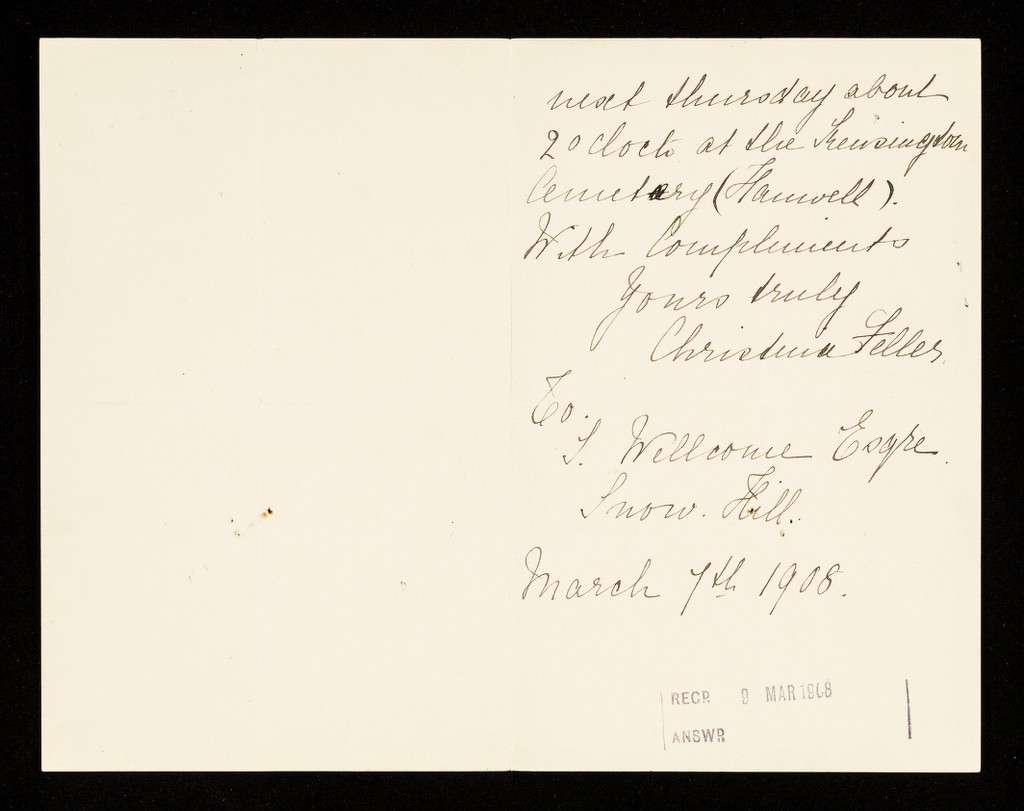 next thursday about
2 o clock at the Kensington
Cemetery (Hanwell).
With Compliments
Yours truly
Christina Feller.
To.
S. Wellcome Esqre.
Snow. Hill.
March 7th 1908.
RECR 9 MAR 1908
ANSWR